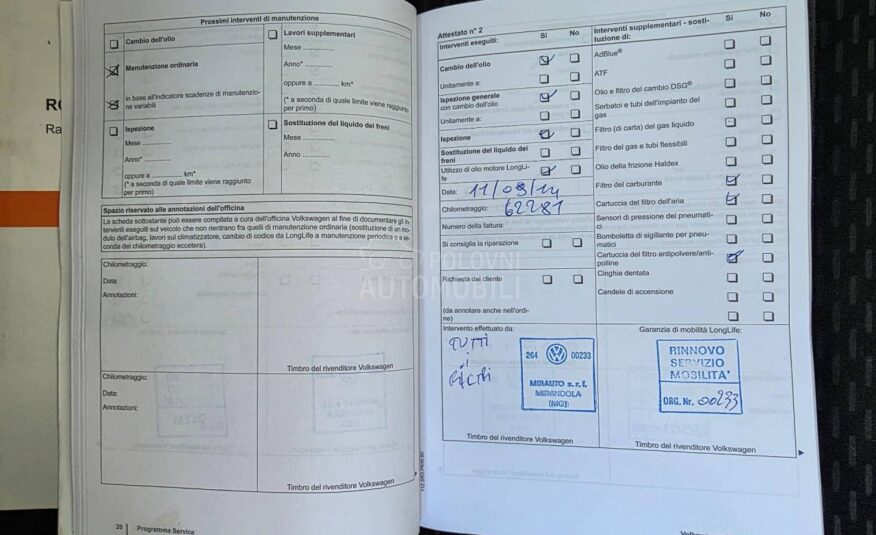 Prossimi interventi di manutenzione
Cambio dell'olio
Manutenzione ordinaria
in base all'indicatore scadenze di manutenzio-
ne variabili
Ispezione
Mese
Anno*
oppure a ............ km*
(* a seconda di quale limite viene raggiunto
per primo)
Lavori supplementari
Mese
Anno*
oppure a ............ km*
(* a seconda di quale limite viene raggiunto
per primo)
Sostituzione del liquido dei freni
Mese
Anno
Spazio riservato alle annotazioni dell'officina
La scheda sottostante può essere compilata a cura dell'officina Volkswagen al fine di documentare gli in-
terventi eseguiti sul veicolo che non rientrano fra quelli di manutenzione ordinaria (sostituzione di un mo-
dulo dell'airbag, lavori sul climatizzatore, cambio di codice da LongLife a manutenzione periodica o a se-
conda del chilometraggio eccetera).
Chilometraggio:
Data:
Annotazioni:
Timbro del rivenditore Volkswagen
Chilometraggio:
Data:
Annotazioni:
Timbro del rivenditore Volkswagen
20 Programma Service
Attestato n° 2
Interventi eseguiti: Sì No
Cambio dell'olio
Unitamente a:
Ispezione generale
con cambio dell'olio
Unitamente a:
Ispezione
Sostituzione del liquido dei
freni
Utilizzo di olio motore LongLi-
fe
Data: 11/09/14
Chilometraggio: 62281
Numero della fattura:
Si consiglia la riparazione
Richiesta del cliente
(da annotare anche nell'ordi-
ne)
Interventi supplementari - sosti-
tuzione di: Sì No
AdBlue®
ATF
Olio e filtro del cambio DSG®
Serbatoi e tubi dell'impianto del
gas
Filtro (di carta) del gas liquido
Filtro del gas e tubi flessibili
Olio della frizione Haldex
Filtro del carburante
Cartuccia del filtro dell'aria
Sensori di pressione dei pneumati-
ci
Bomboletta di sigillante per pneu-
matici
Cartuccia del filtro antipolvere/anti-
polline
Cinghia dentata
Candele di accensione
Intervento effettuato da:
TUTTI
i
FILTRI
264 00233
MIRAUTO s.r.l.
MIRANDOLA
(MO)
Timbro del rivenditore Volkswagen
Garanzia di mobilità LongLife:
RINNOVO
SERVIZIO
MOBILITA'
ORG. Nr. 00233
Timbro del rivenditore Volkswagen
POLOVNI
AUTOMOBILI